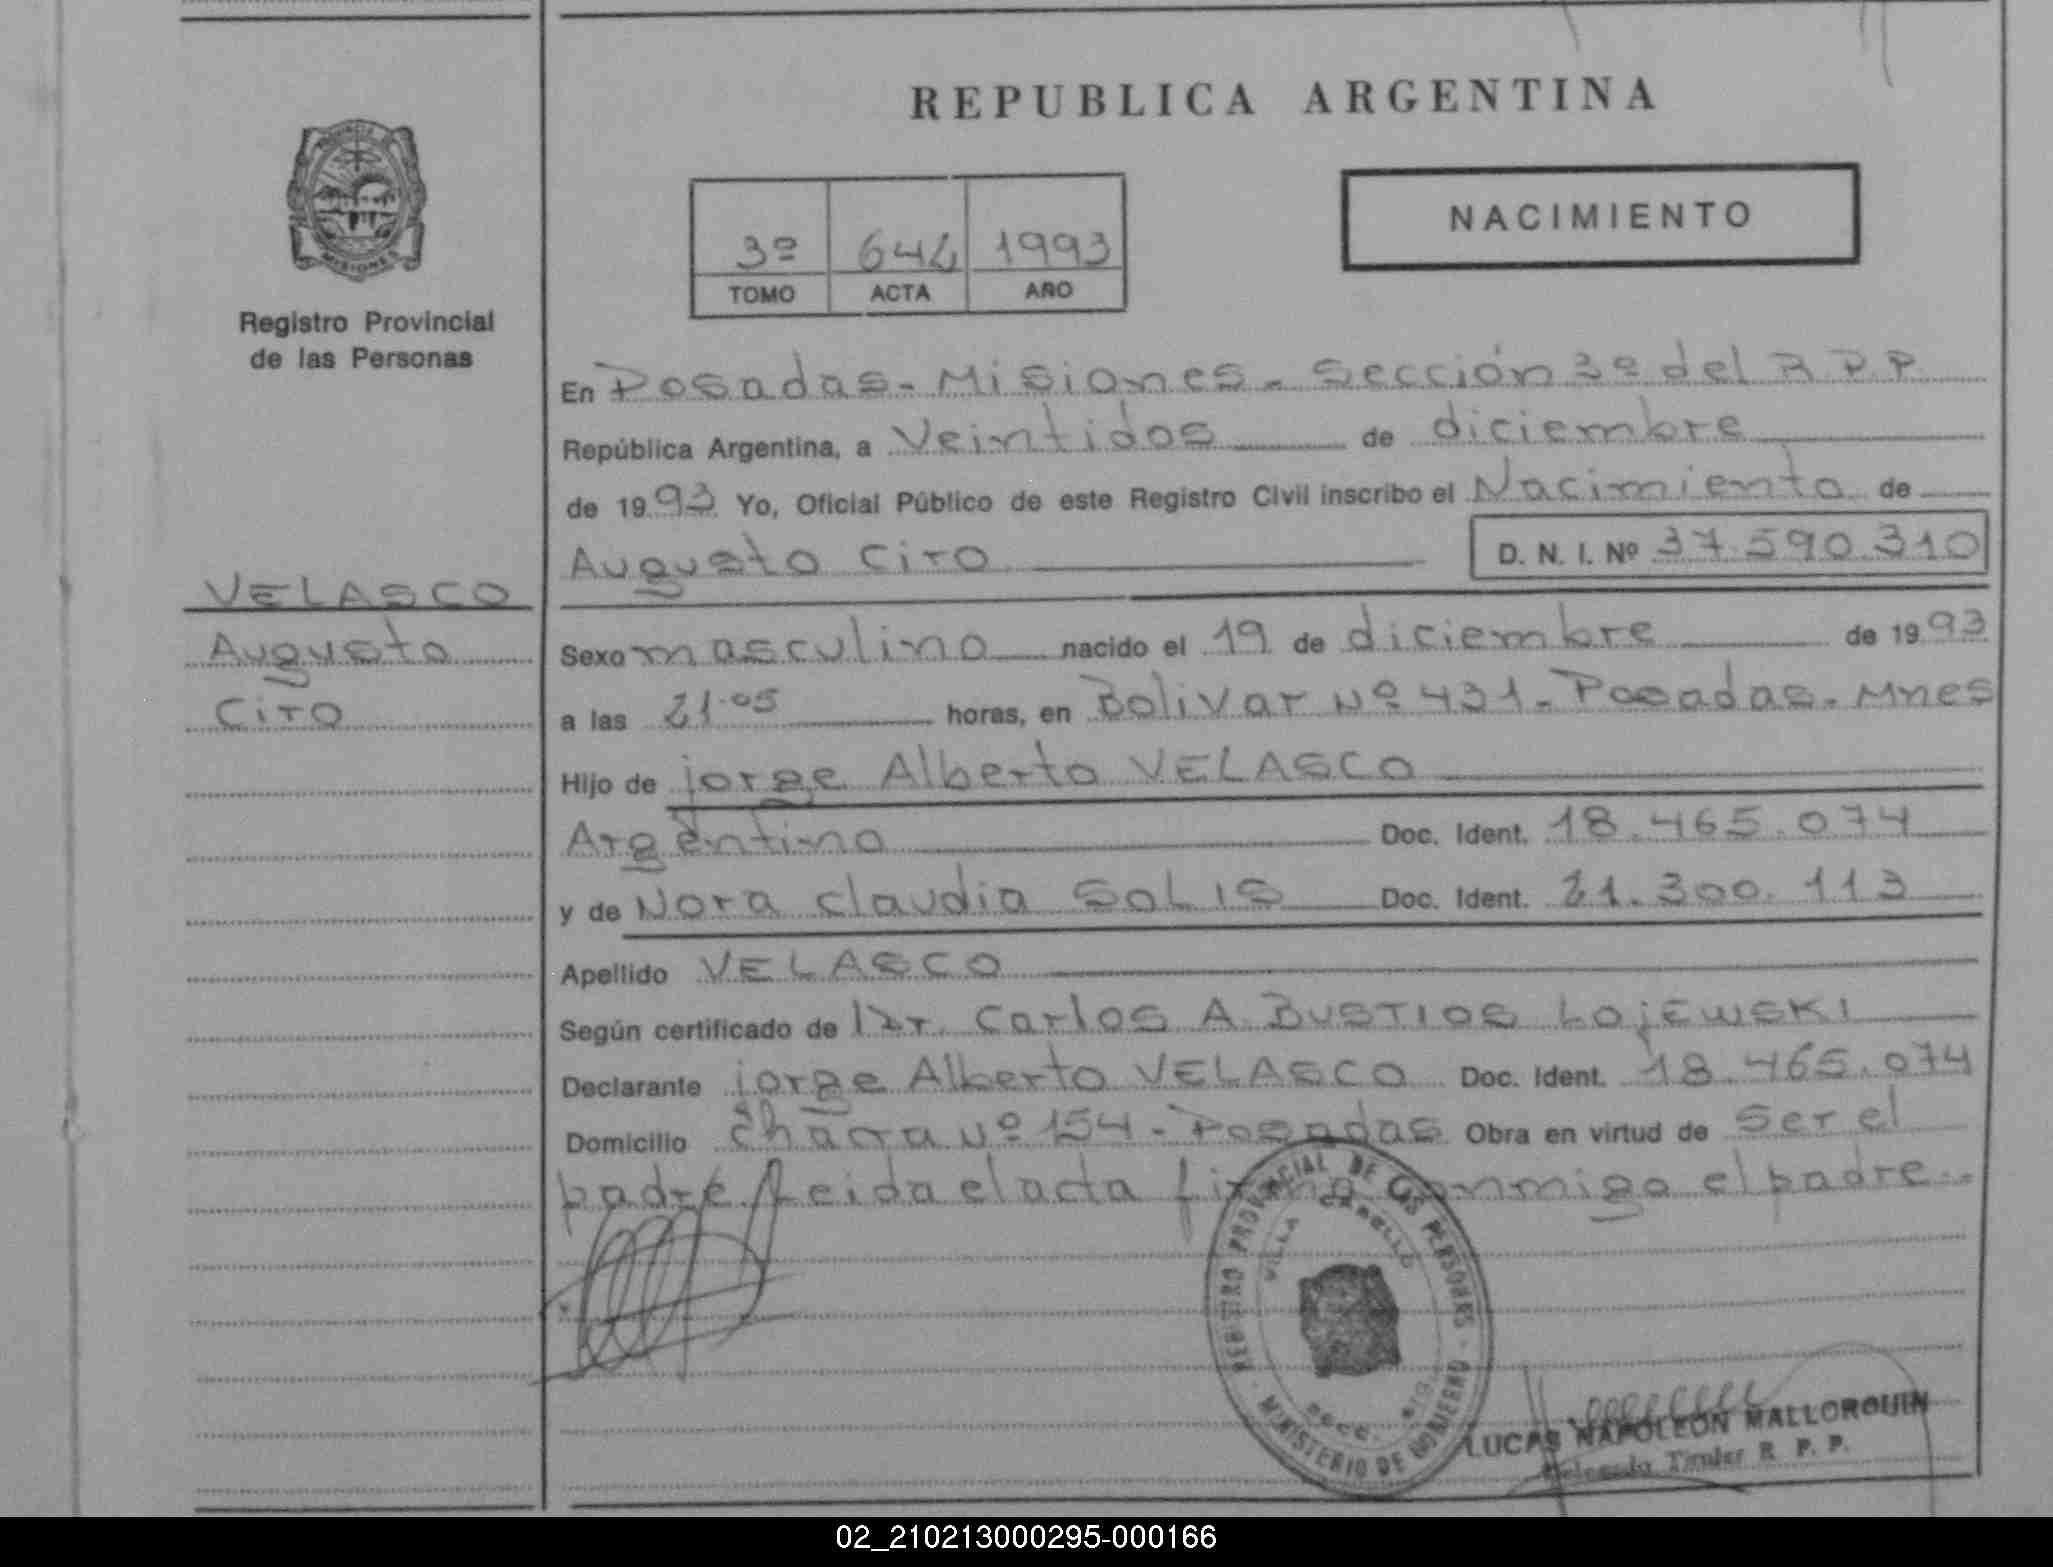 REPUBLICA ARGENTINA
PROVINCIA
MISIONES
Registro Provincial
de las Personas
3º 642 1993
TOMO ACTA AÑO
NACIMIENTO
En Posadas - Misiones - Sección 3º del R.P.P.
República Argentina, a Veintidos de diciembre
de 1993 Yo, Oficial Público de este Registro Civil inscribo el Nacimiento de
Augusto Ciro D. N. I. Nº 37.590.310
VELASCO
Augusto
Ciro
Sexo masculino nacido el 19 de diciembre de 1993
a las 21.05 horas, en Bolivar Nº 431 - Posadas - Mnes
Hijo de jorge Alberto VELASCO
Argentino Doc. Ident. 18.465.074
y de Nora Claudia SOLIS Doc. Ident. 21.300.113
Apellido VELASCO
Según certificado de Dr. Carlos A. BUSTIOS LOjEWSKI
Declarante jorge Alberto VELASCO Doc. Ident. 18.465.074
Domicilio Chacra Nº 154 - Posadas Obra en virtud de Ser el
padre. Leida el acta firma conmigo el padre.-
REGISTRO PROVINCIAL DE LAS PERSONAS
VILLA CABELLO
SECC.
MINISTERIO DE GOBIERNO
LUCAS NAPOLEON MALLORQUIN
Delegado Titular R. P. P.
02_210213000295-000166